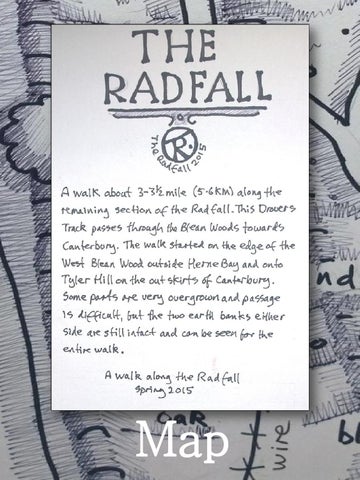 THE
RADFALL
R.
The Radfall 2015
A walk about 3-3½ mile (5-6KM) along the
remaining section of the Radfall. This Drovers
Track passes through the Blean Woods towards
Canterbury. The walk started on the edge of the
West Blean Wood outside Herne Bay and onto
Tyler Hill on the out skirts of Canterbury.
Some parts are very overgrown and passage
is difficult, but the two earth banks either
side are still intact and can be seen for the
entire walk.
A walk along the Radfall
Spring 2015
nd
oak
bl
wire
Map